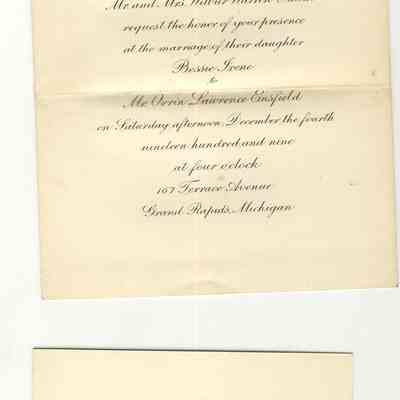 Mr. and Mrs. Wilbur Warren
request the honor of your presence
at the marriage of their daughter
Bessie Irene
to
Mr. Orrin Lawrence Einsfield
on Saturday afternoon, December the fourth
nineteen hundred and nine
at four o'clock
167 Terrace Avenue
Grand Rapids, Michigan